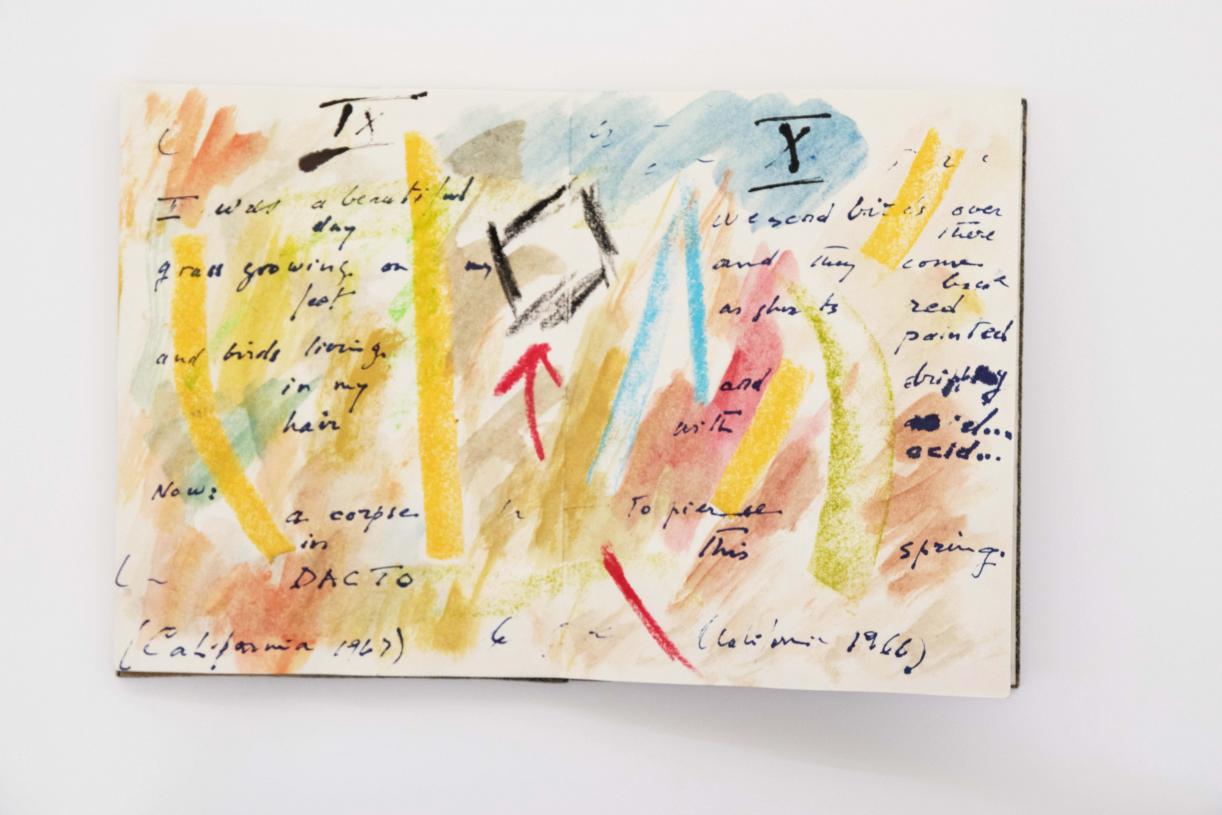 IX
I was a beautiful
day
grass growing on my
feet
and birds living
in my
hair
Now:
a corpse
in
DACTO
(California 1967)
X
we send birds over
there
and they come
back
as ghosts red
painted
and dripping
with
acid...
To pierce
This spring.
(California 1966)